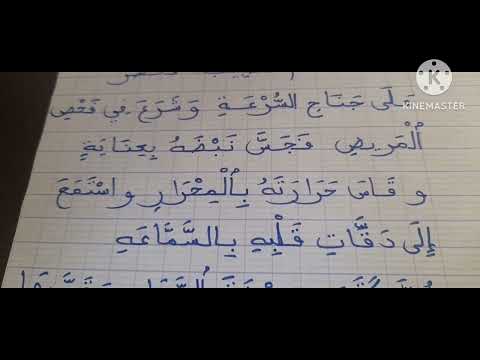 KINEMASTER
عَلَى جَنَاحِ السُّرْعَةِ وَشَرَعَ فِي فَحْصِ
الْمَرِيضِ فَجَسَّ نَبْضَهُ بِعِنَايَةٍ
و قَاسَ حَرَارَتَهُ بِالْمِحْرَارِ واسْتَمَعَ
إِلَى دَقَّاتِ قَلْبِهِ بِالسَّمَّاعَةِ